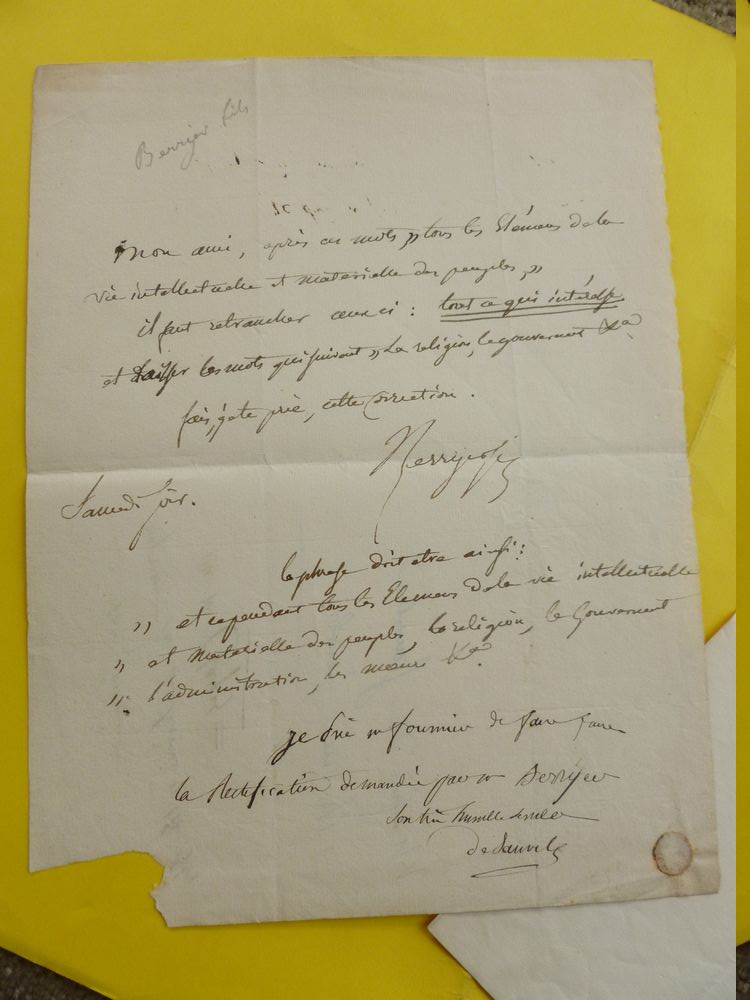 Berryer fils
Mon ami, après ces mots "tous les Elémens de la
vie intellectuelle et materielle des peuples,"
il faut retrancher ceux ci : tout ce qui intéresse
et laisser les mots qui suivent "La religion, le gouvernent &a
fais, je te prie, cette correction.
Berryer fils
Samedi soir.
la phrase doit etre ainsi :
" et cependant tous les Elemens de la vie intellectuelle
" et Materielle des peuples, la religion, le Gouvernent
" l'administration, les mœurs &a.
je prie mr fournier de faire faire
la Rectification demandée par mr Berryer
Son très humble